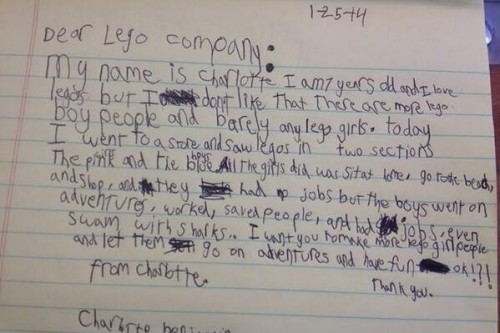 1-25-14
Dear Lego company:
My name is Charlotte. I am 7 years old and I love
legos but I don't like that there are more lego
boy people and barely any lego girls. today
I went to a store and saw legos in two sections
The pink and the blue boys. All the girls did was sit at home, go to the beach,
and shop, and they had no jobs but the boys went on
adventures, worked, saved people, and had jobs, even
swam with sharks. I want you to make more lego girl people
and let them go on adventures and have fun ok!?!
Thank you.
from Charlotte.
Charlotte